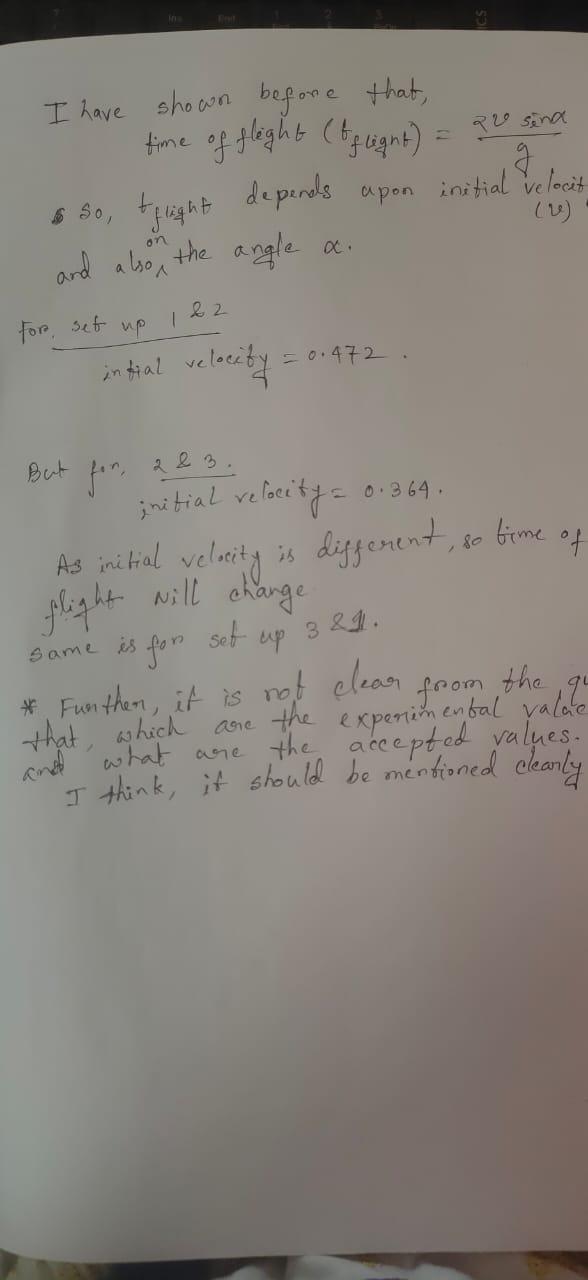 Ins End
I have shown before that,
time of flight (t_flight) = 2v sinα / g
So, t_flight depends upon initial velocit
(v)
and also on the angle α.
For, set up 1 & 2
intial velocity = 0.472 .
But for, 2 & 3.
initial velocity = 0.364.
As initial velocity is different, so time of
flight will change
same is for set up 3 & 1.
* Further, it is not clear from the qu
that, which are the experimental value
and what are the accepted values.
I think, it should be mentioned clearly